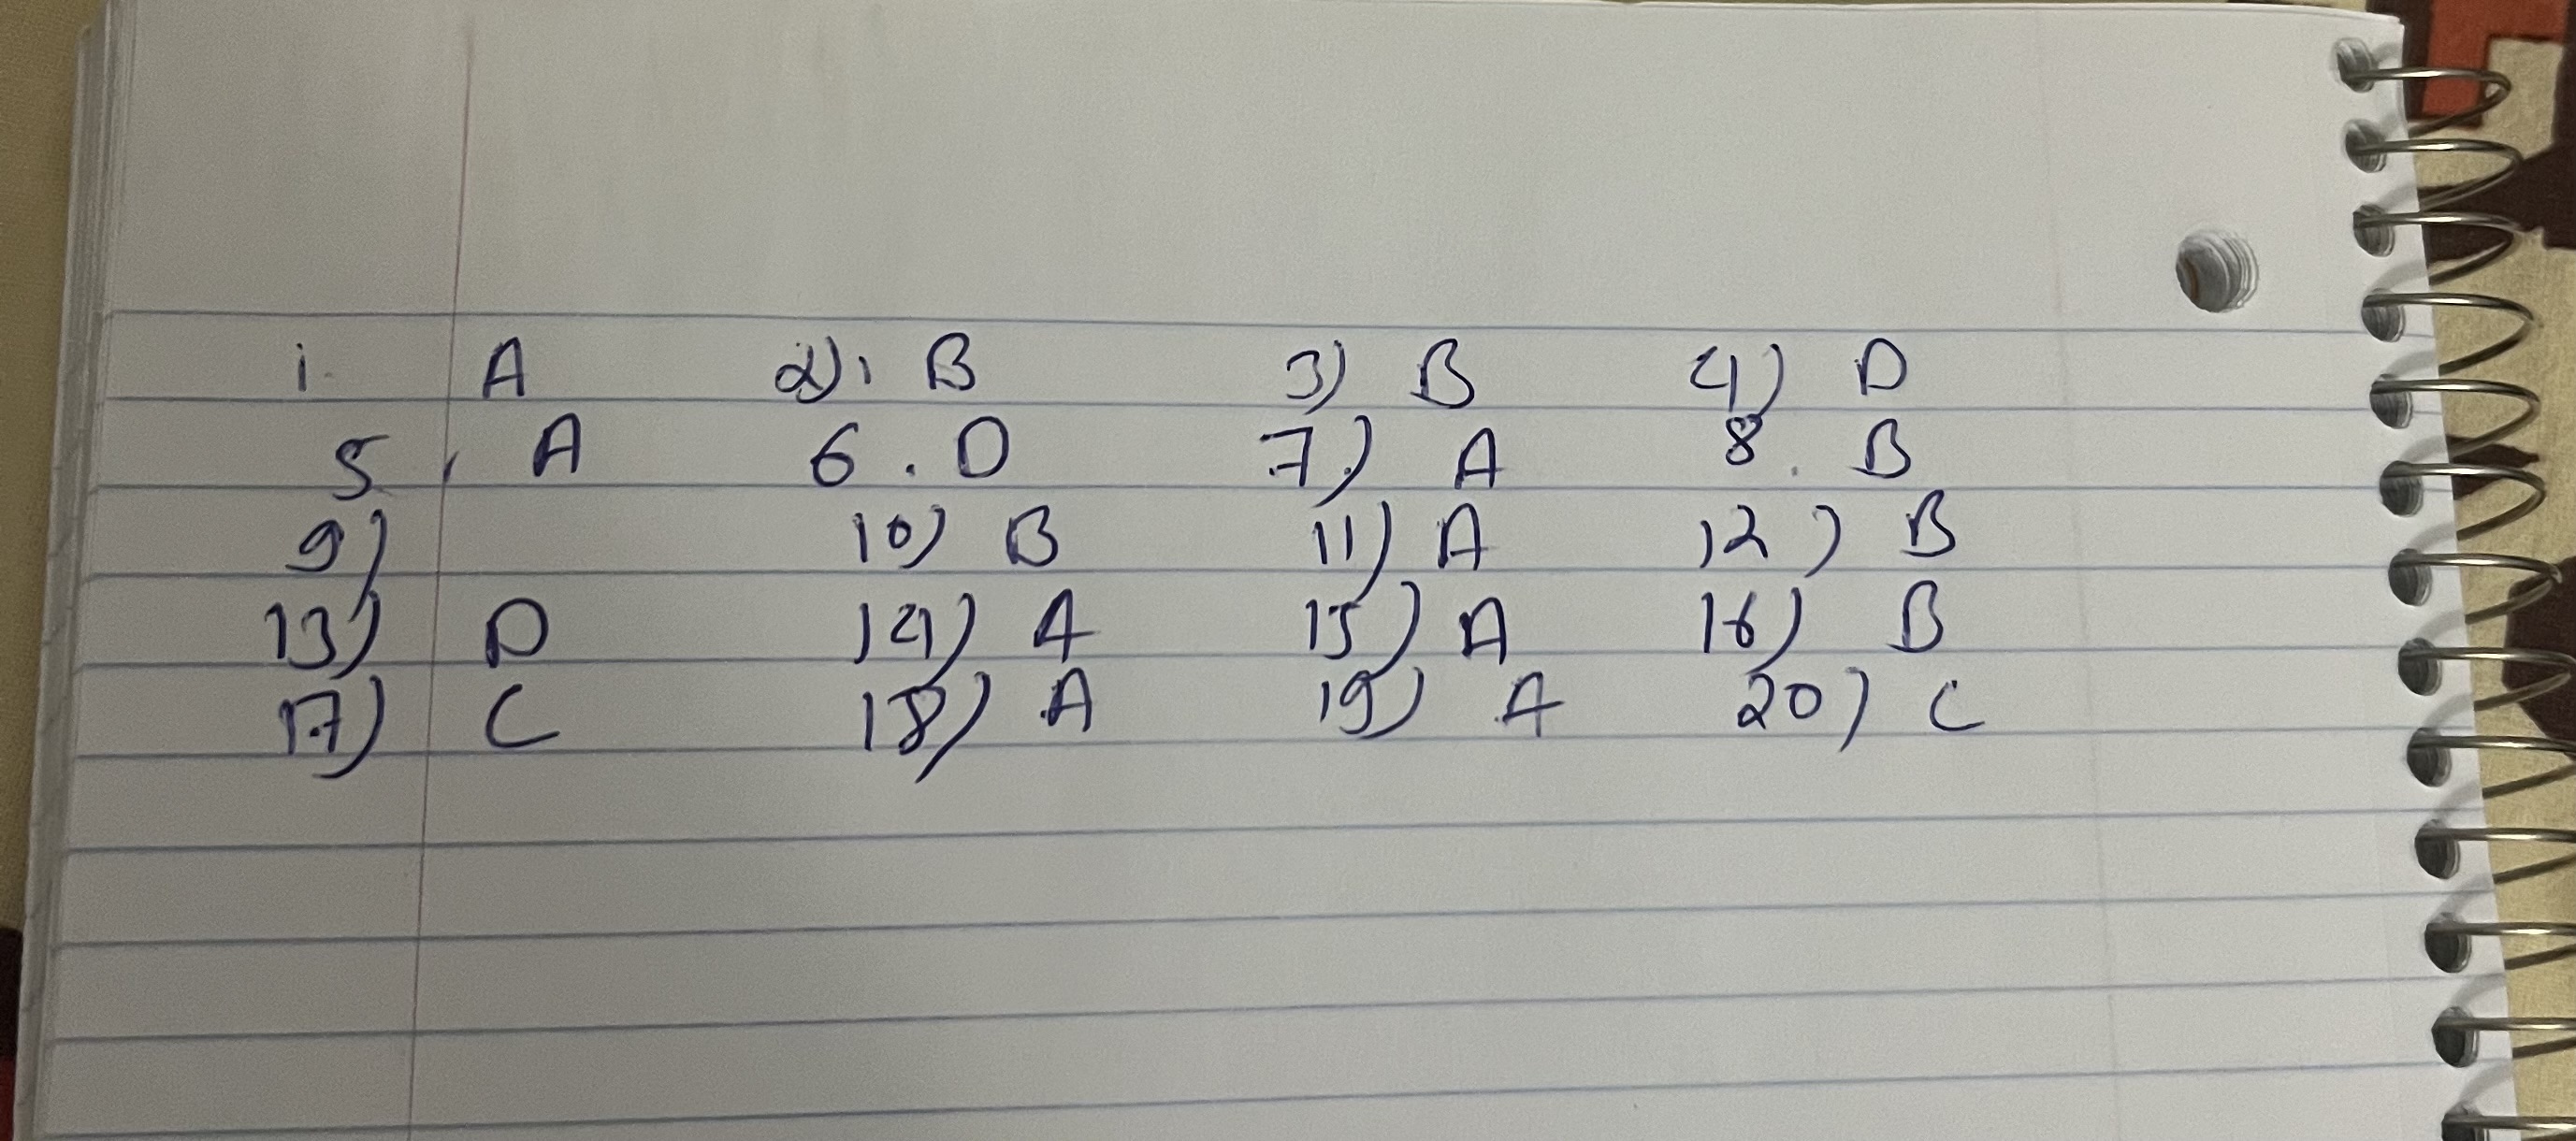 1. A 2). B 3) B 4) D
5. A 6. D 7.) A 8. B
9) 10) B 11) A 12) B
13) D 14) A 15) A 16) B
17) C 18) A 19) A 20) C